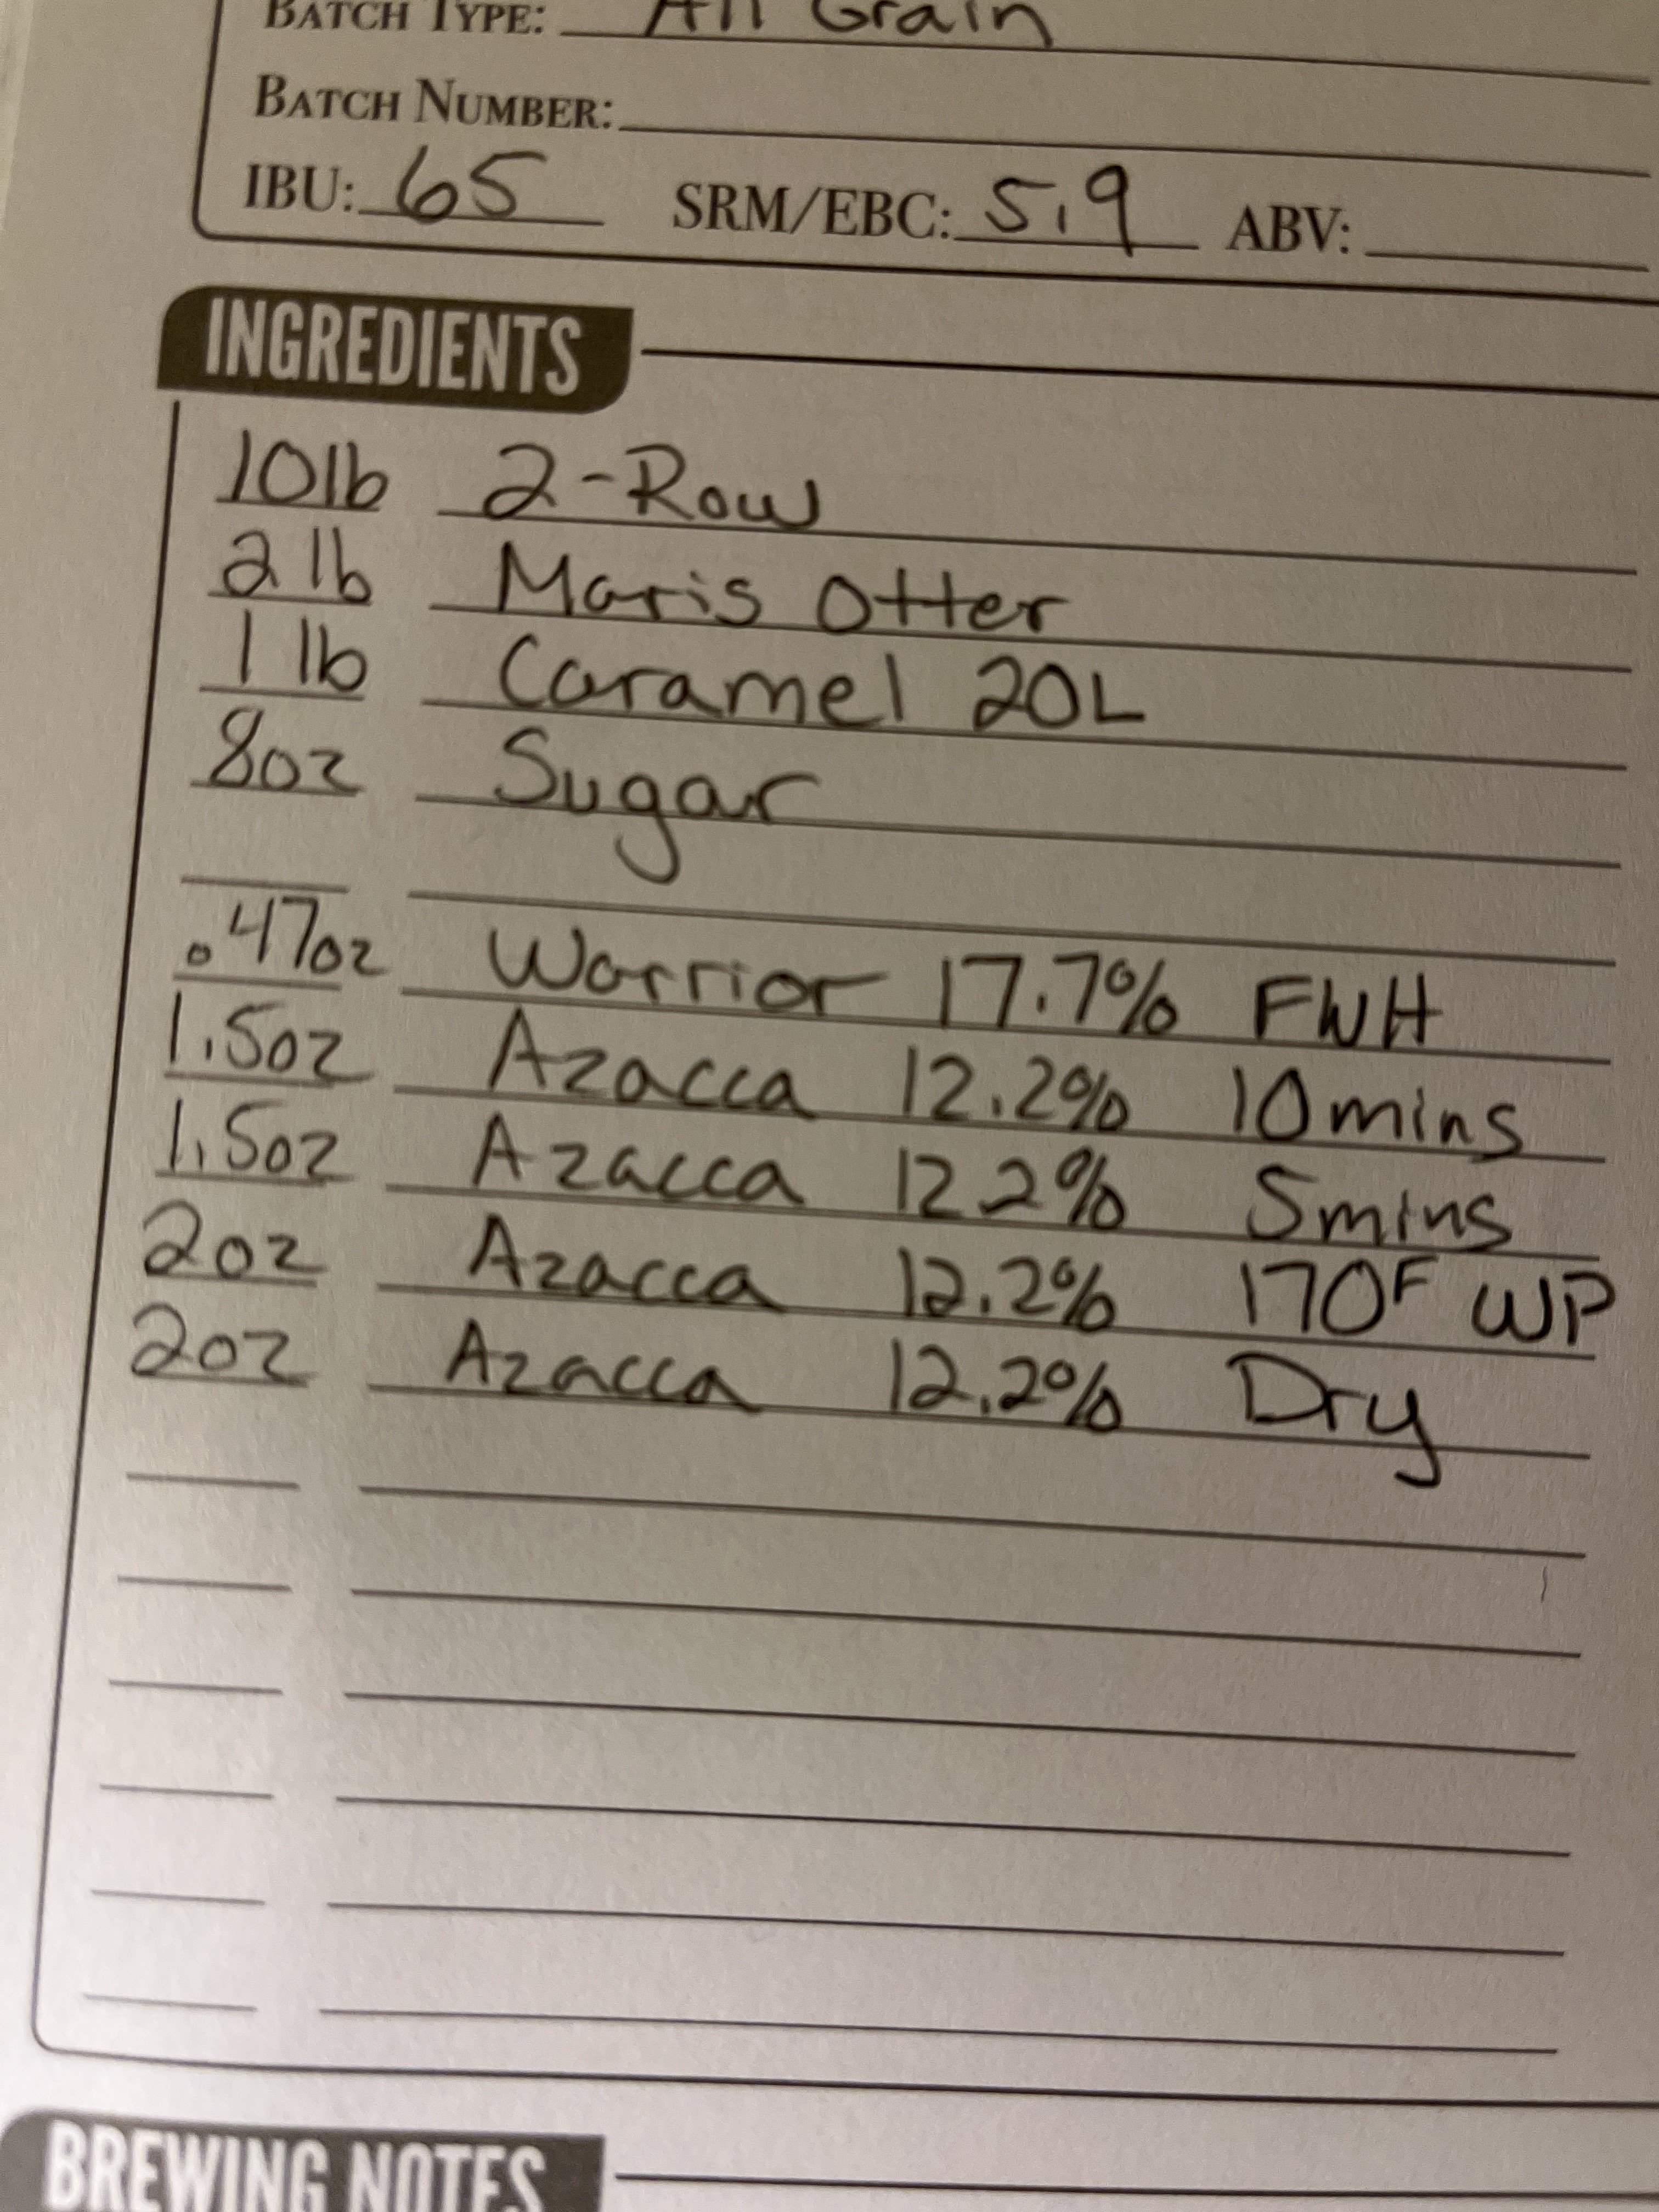 BATCH TYPE: All Grain
BATCH NUMBER:
IBU: 65 SRM/EBC: 5.9 ABV:
INGREDIENTS
10lb 2-Row
2 lb Maris Otter
1 lb Caramel 20L
8oz Sugar
.47oz Warrior 17.7% FWH
1.5oz Azacca 12.2% 10mins
1.5oz Azacca 12.2% 5mins
2oz Azacca 12.2% 170F WP
2oz Azacca 12.2% Dry
BREWING NOTES